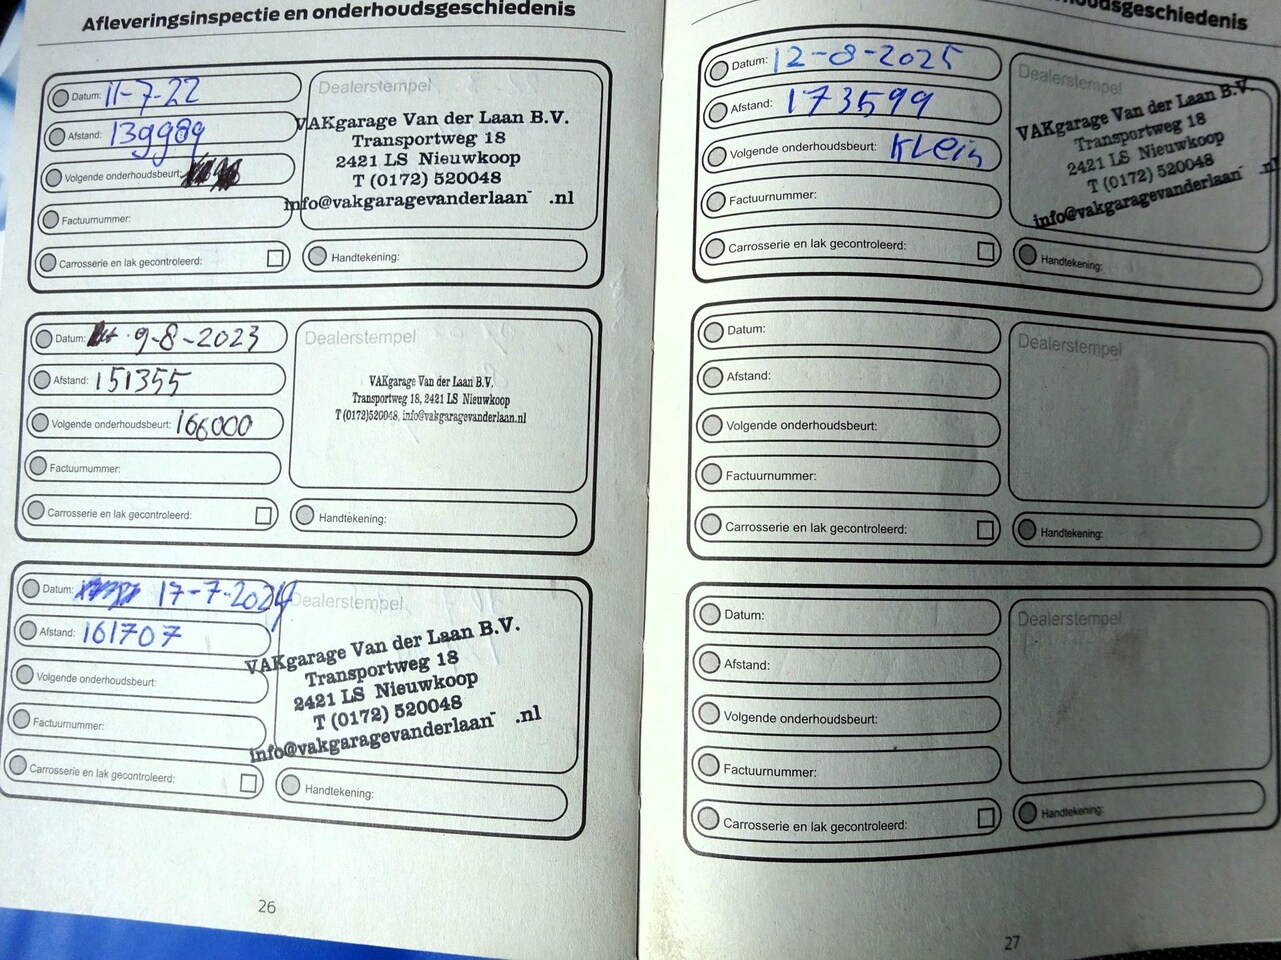 Afleveringsinspectie en onderhoudsgeschiedenis
Datum: 11-7-22
Afstand: 139989
Volgende onderhoudsbeurt:
Factuurnummer:
Carrosserie en lak gecontroleerd:
Dealerstempel
VAKgarage Van der Laan B.V.
Transportweg 18
2421 LS Nieuwkoop
T (0172) 520048
info@vakgaragevanderlaan .nl
Handtekening:
Datum: 9-8-2023
Afstand: 151355
Volgende onderhoudsbeurt: 166000
Factuurnummer:
Carrosserie en lak gecontroleerd:
Dealerstempel
VAKgarage Van der Laan B.V.
Transportweg 18, 2421 LS Nieuwkoop
T (0172)520048, info@vakgaragevanderlaan.nl
Handtekening:
Datum: 17-7-2024
Afstand: 161707
Volgende onderhoudsbeurt:
Factuurnummer:
Carrosserie en lak gecontroleerd:
Dealerstempel
VAKgarage Van der Laan B.V.
Transportweg 18
2421 LS Nieuwkoop
T (0172) 520048
info@vakgaragevanderlaan .nl
Handtekening:
26
Datum: 12-8-2025
Afstand: 173599
Volgende onderhoudsbeurt: Klein
Factuurnummer:
Carrosserie en lak gecontroleerd:
Dealerstempel
VAKgarage Van der Laan B.V.
Transportweg 18
2421 LS Nieuwkoop
T (0172) 520048
info@vakgaragevanderlaan .nl
Handtekening:
Datum:
Afstand:
Volgende onderhoudsbeurt:
Factuurnummer:
Carrosserie en lak gecontroleerd:
Dealerstempel
Handtekening:
Datum:
Afstand:
Volgende onderhoudsbeurt:
Factuurnummer:
Carrosserie en lak gecontroleerd:
Dealerstempel
Handtekening:
27